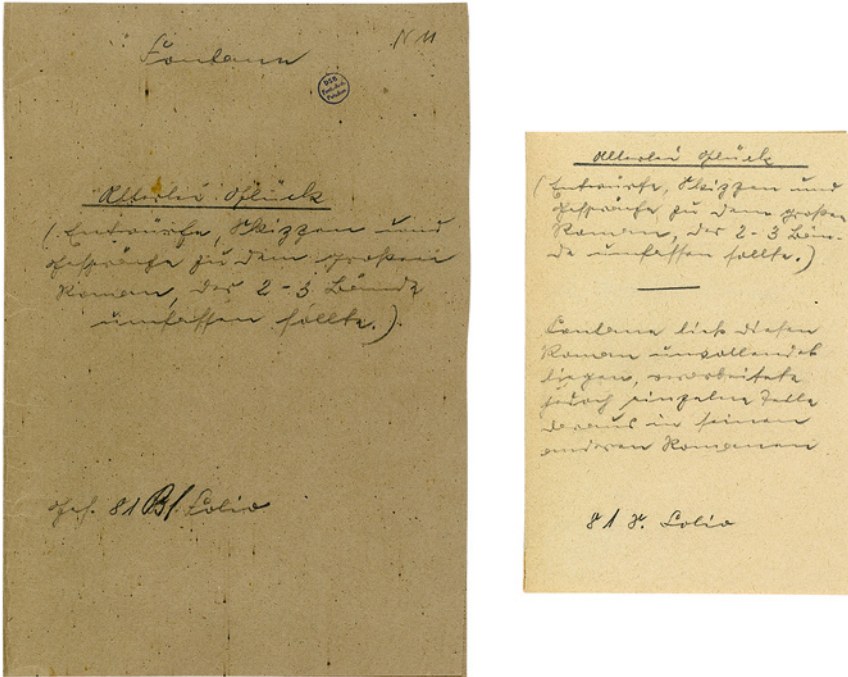 Fontane
N 11
Allerlei Glück
(Entwürfe, Skizzen und
Gespräche zu dem großen
Roman, der 2-3 Bände
umfassen sollte.)
Ges. 81 Bl. Folio
Allerlei Glück
(Entwürfe, Skizzen und
Gespräche zu dem großen
Roman, der 2-3 Bän-
de umfassen sollte.)
Fontane ließ diesen
Roman unvollendet
liegen, verarbeitete
jedoch einzelne Teile
daraus in seinen
anderen Romanen
81 S. Folio